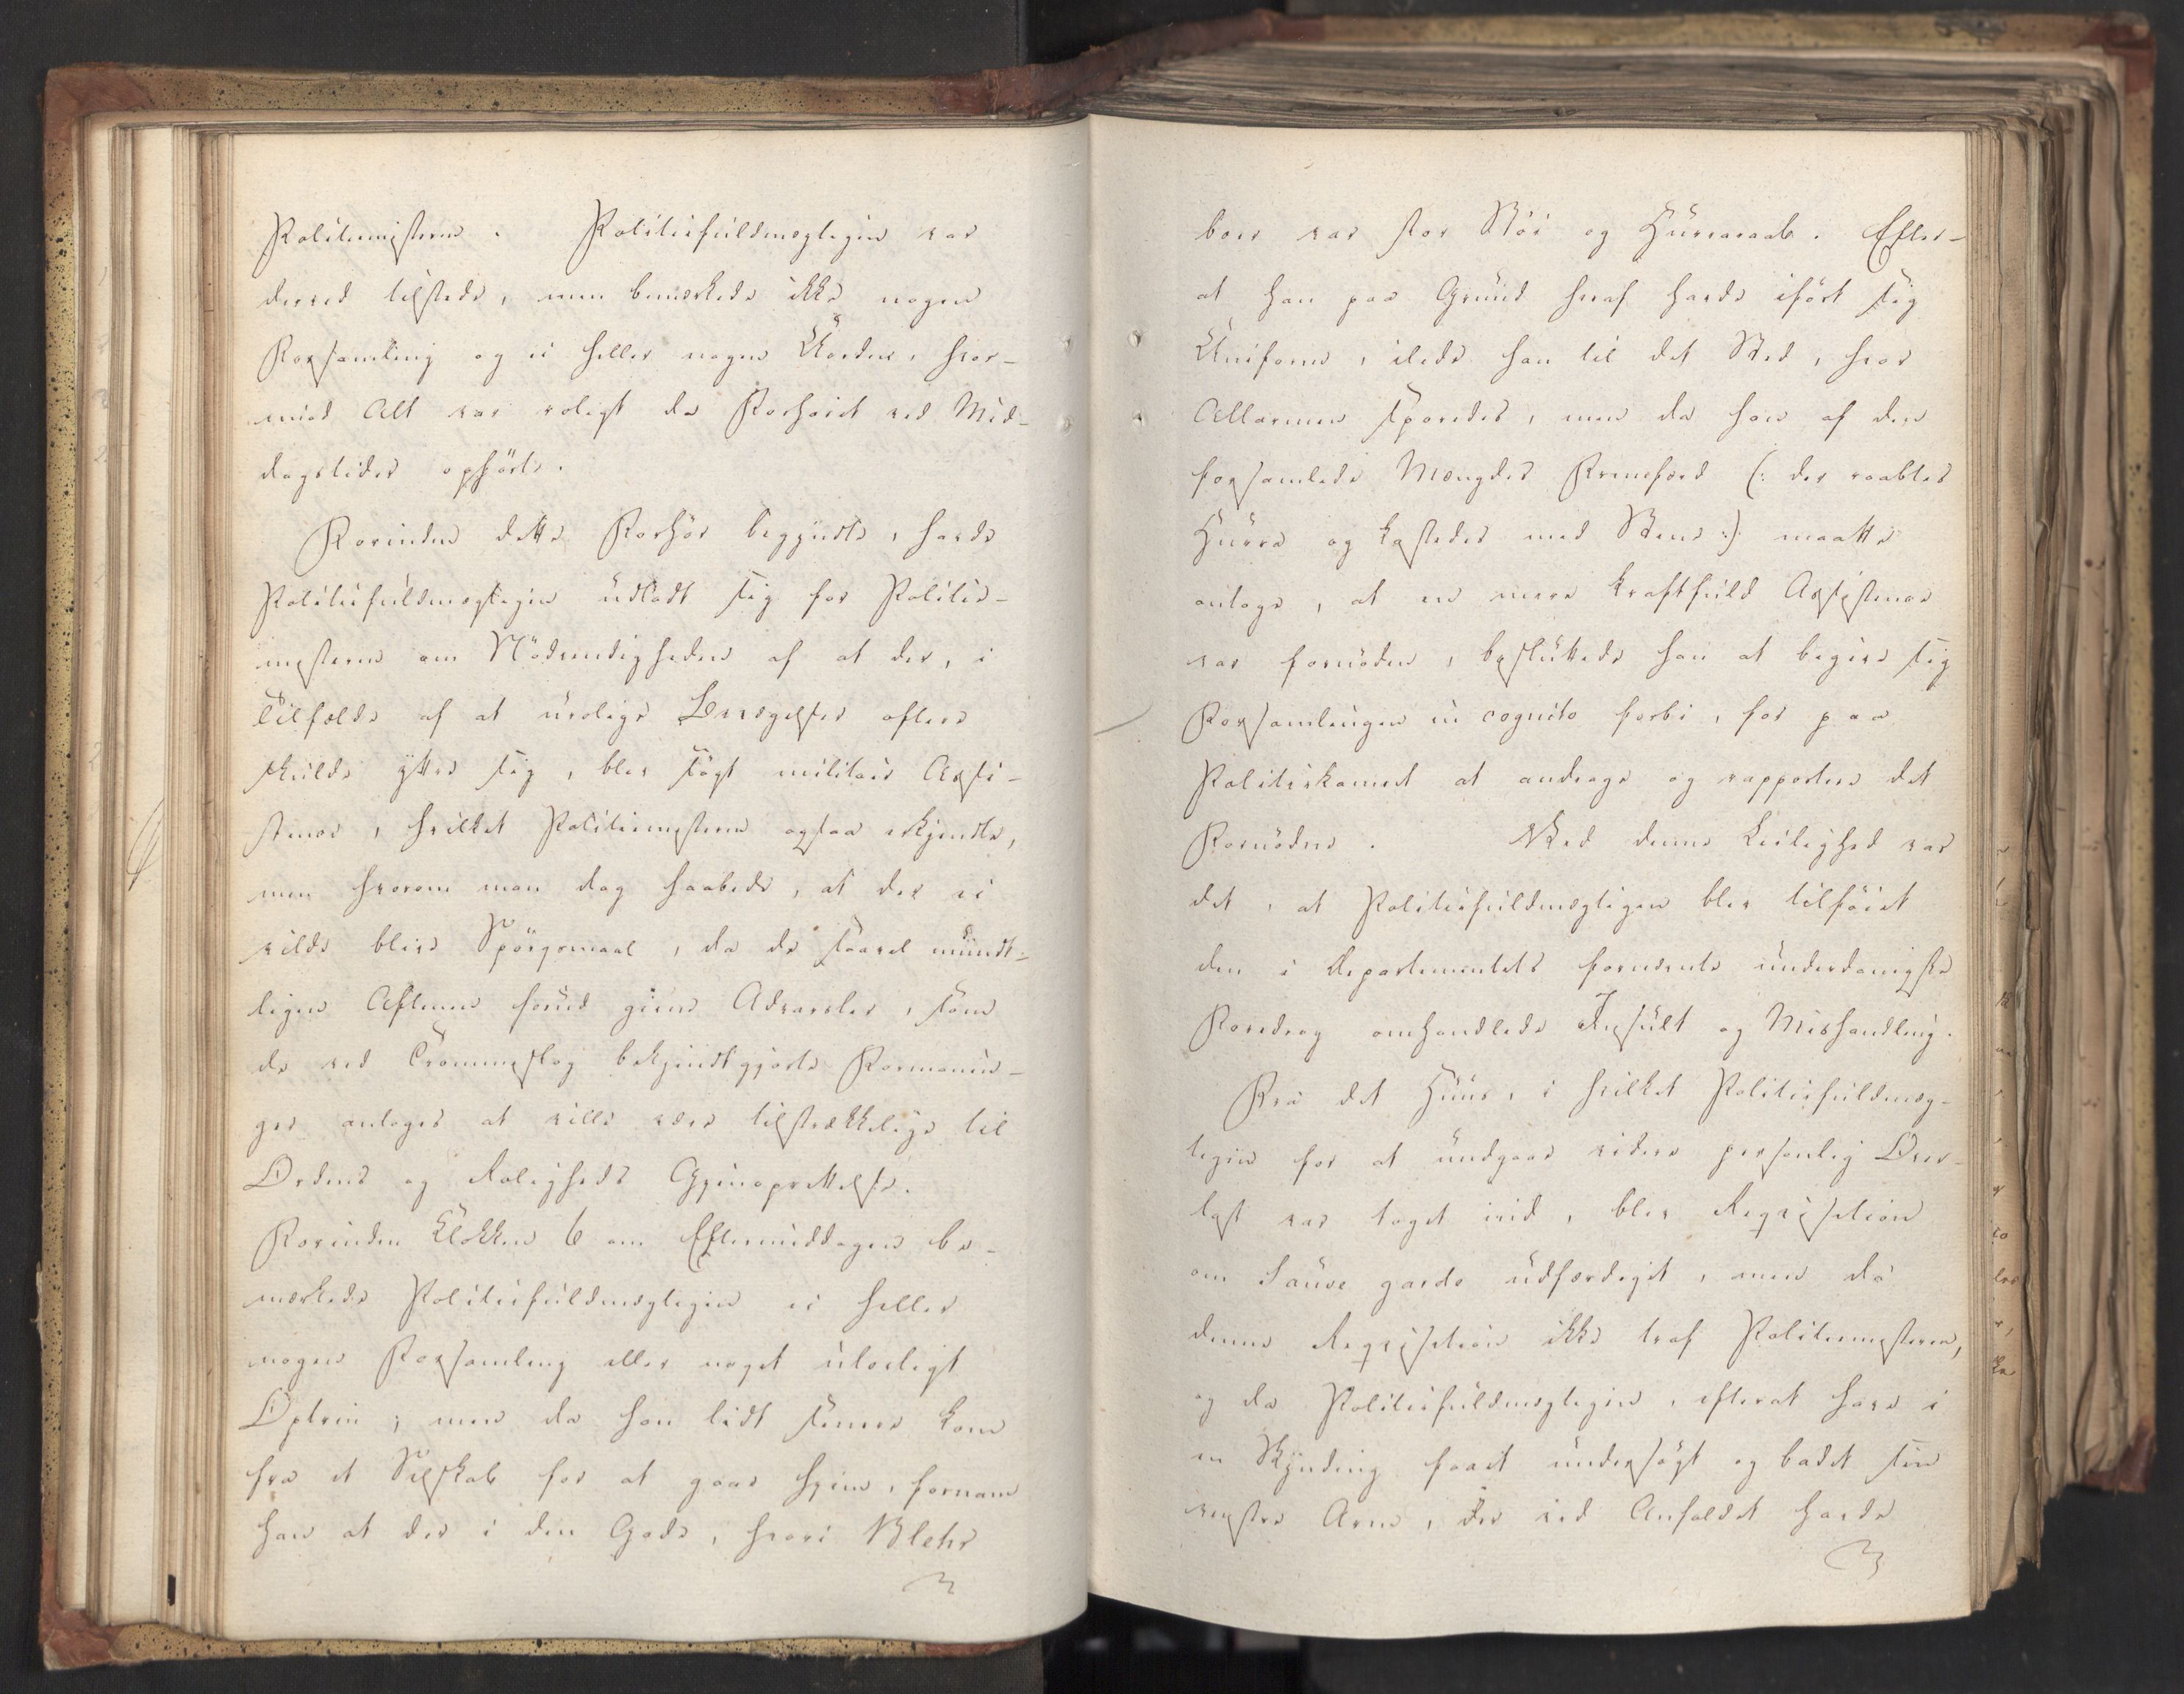 Politiemesteren. Politiefuldmægtigen var
derved tilstede, men bemærkede ikke nogen
Forsamling og ei heller nogen Uorden, hvor-
imod Alt var roligt da Forhøret ved Mid-
dagstider ophørte.
Forinden dette Forhør begyndte, havde
Politiefuldmægtigen udladt sig for Politie-
mesteren om Nødvendigheden af at der, i
Tilfælde af at urolige Bevægelser oftere
skulde yttre sig, blev søgt militair Assi-
stence, hvilket Politiemesteren ogsaa erkjendte,
men hvorom man dog haabede, at der ei
vilde blive Spørgsmaal, da de saavel mundt-
ligen Aftenen forud givne Advarsler, som
de ved Trommeslag bekjendtgjorte Formanin-
ger antoges at ville være tilstrækkelige til
Ordens og Roligheds Gjenoprettelse.
Forinden Klokken 6 om Eftermiddagen be-
mærkede Politiefuldmægtigen ei heller
nogen Forsamling eller noget uloeligt
Optrin; men da han lidt senere kom
fra et Selskab for at gaae hjem, fornam
han at der i den Gade, hvori Blehr
boer var stor Støi og Hurraraab. Efter-
at han paa Grund heraf havde iført sig
Uniform, ilede han til det Sted, hvor
Allarmen sporedes, men da han af den
forsamlede Mængdes Fremfærd (: der raabtes
Hurra og kastedes med Stene :) maatte
antage, at en mere kraftfuld Assistence
var fornøden, besluttede han at begive sig
Forsamlingen in cognito forbi, for paa
Politiekamret at andrage og rapportere det
Fornødne. Ved denne Leilighed var
det, at Politiefuldmægtigen blev tilføiet
den i Departementets fornævnte underdanigste
Foredrag omhandlede Insult og Mishandling.
Fra det Huus, i hvilket Politiefuldmæg-
tigen for at undgaae videre personlig Over-
last var taget ind, blev Reqvisition
om Sauve garde udfærdiget, men da
denne Reqvisition ikke traf Politiemesteren,
og da Politiefuldmægtigen, efterat have i
en Skynding faaet undersøgt og badet sin
venstre Arm, der ved Anfaldet havde